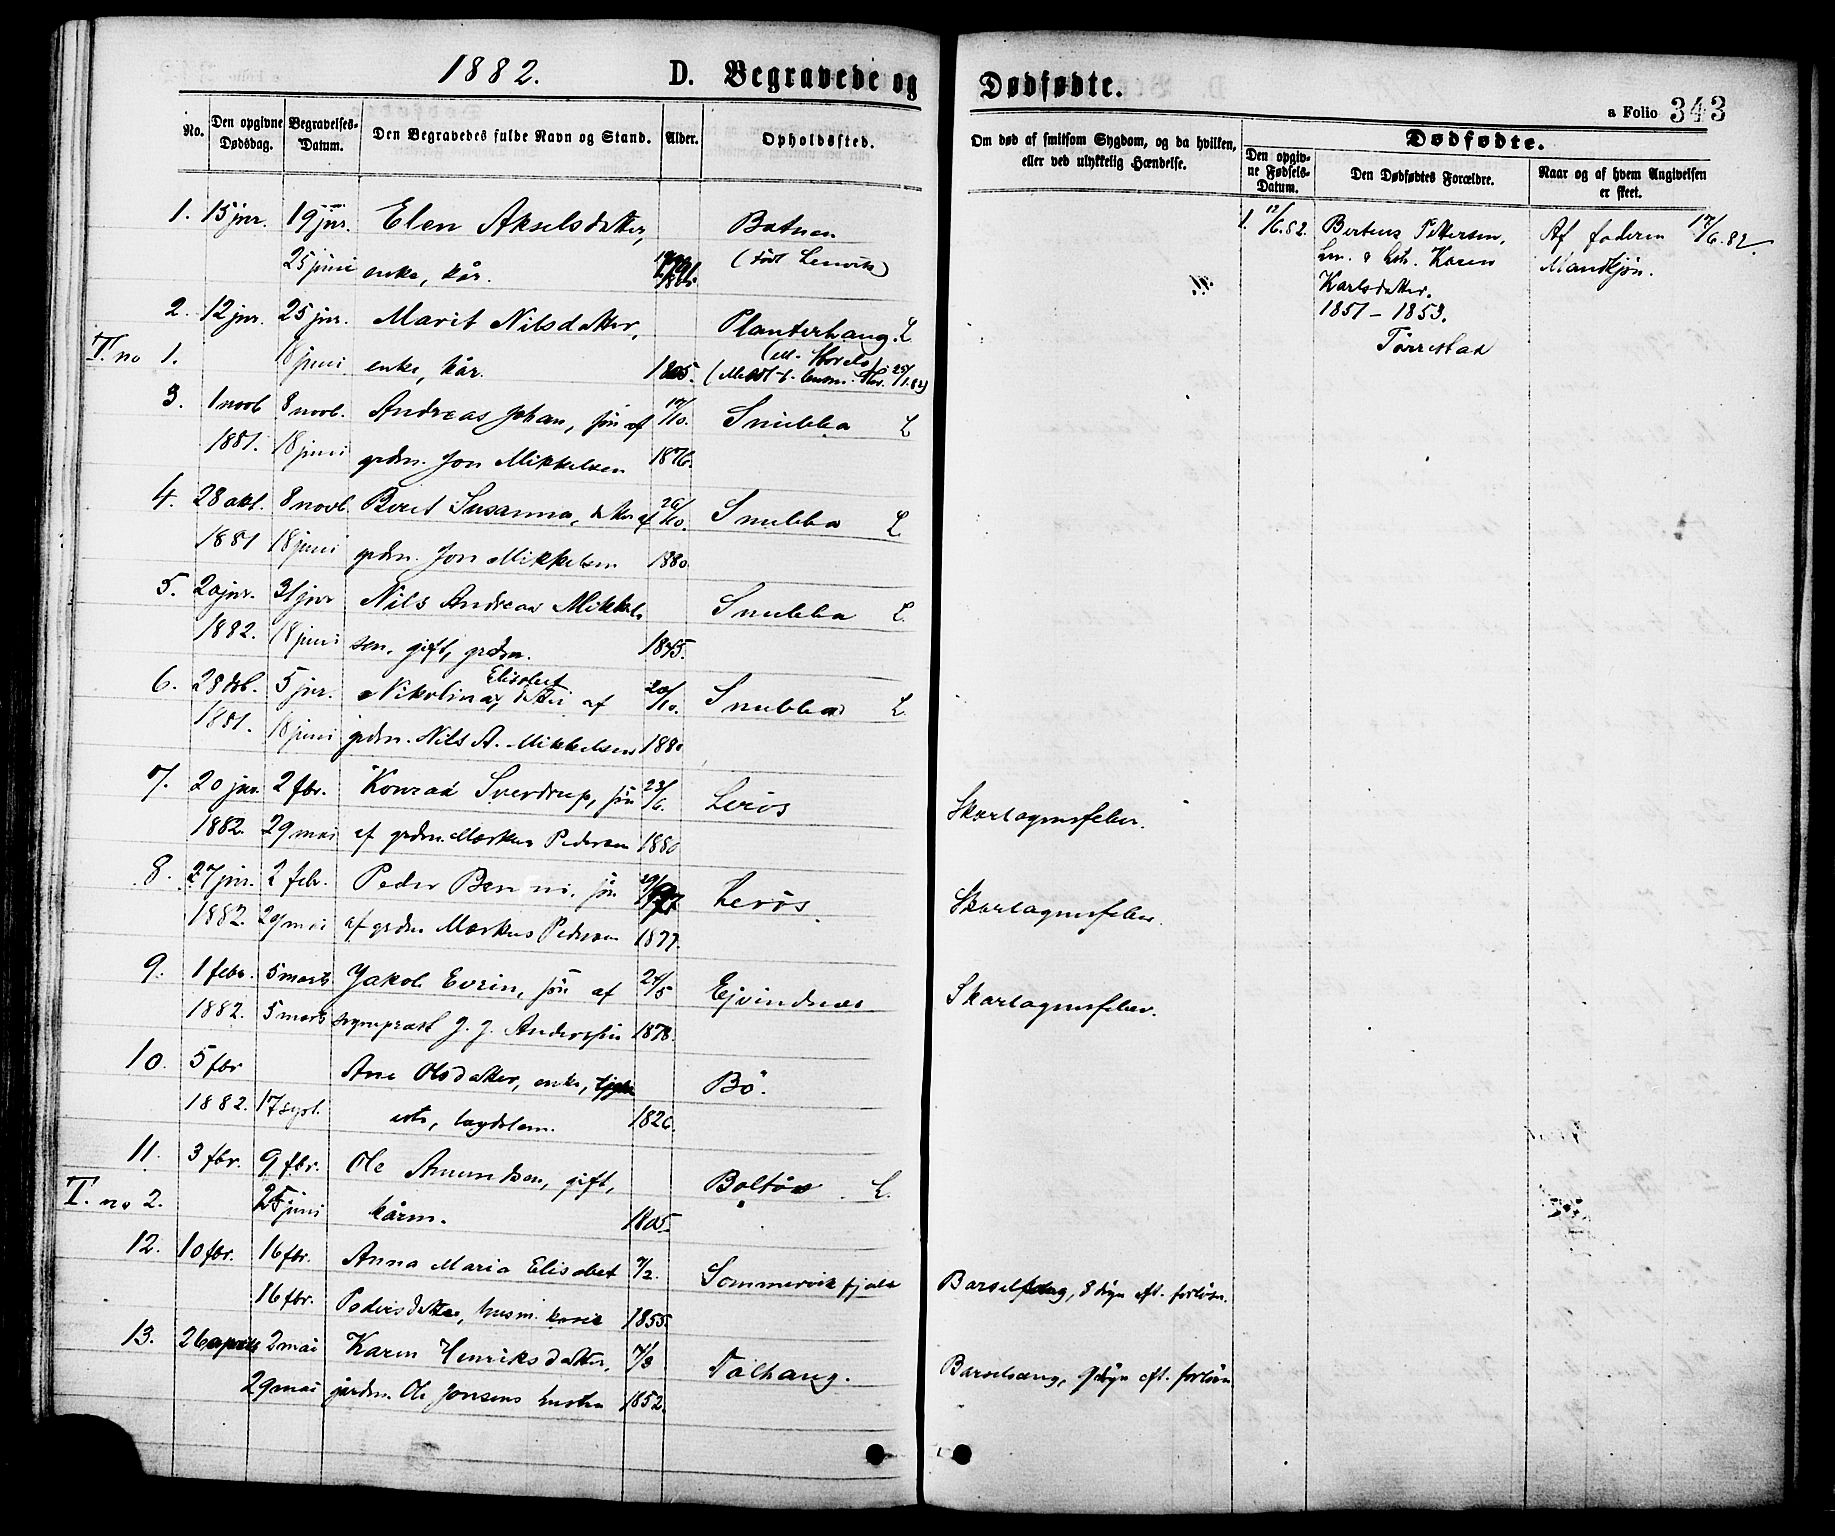 1882. D. Begravede og
No. Den opgivne Dødsdag. Begravelses-Datum. Den Begravedes fulde Navn og Stand. Alder. Opholdssted.
1. 15 jnr. 19 jnr. Elen Akselsdatter, Botnen
25 juni enke, kår. (født Lenvik)
2. 12 jnr. 25 jnr. Marit Nilsdatter, Planterhaug. L
T. no 1. 18 juni enke, kår. 1805.
3. 1 novb 8 novb. Andreas Johan, søn af 17/10. Snubba L
1881. 18 juni grdm. Jon Mikkelsen 1876.
4. 28 okt. 8 novb. Beret Susanna, datter af 26/10. Snubba L
1881 18 juni grdm. Jon Mikkelsen 1880
5. 20 jnr. 31 jnr Nils Andreas Mikkel- Snubba L.
1882. 18 juni sen, gift, grdm. 1845.
6. 28 db. 5 jnr. Nikolina Elisabet, datter af 20/10. Snubba L
1881. 18 juni grdm. Nils A. Mikkelsen 1880
7. 20 jnr. 2 fbr. Konrad Sverdrup, søn 23/6. Lerøs
1882. 29 mai af grdm. Markus Pedersen 1880
8. 27 jnr. 2 febr. Peder Benoni, søn Lerøs
1882. 29 mai af grdm Markus Pedersen 1877.
9. 1 febr. 5 marts Jakob Evrin, søn af 24/5 Ejvindnæs
1882. 5 marts sognepræst J. J. Anderssen 1878.
10. 5 fbr Ane Olsdatter, enke, Bø.
1882. 17 septb. lægdslem. 1826.
11. 3 fbr. 9 fbr. Ole Amundsen, gift, Boltås L.
T. no 2. 25 juni kårm. 1805.
12. 10 fbr. 16 fbr. Anna Maria Elisabet 7/2. Sommervikfjeld
16 fbr. Pedersdatter, husm. kone 1855.
13. 26 april 2 mai Karen Henriksdatter, 7/3 Tølhaug.
29 mai grdm. Ole Jonsens hustru 1852.
Dødfødte.
a Folio 343
Om død af smitsom Sygdom, og da hvilken, eller ved ulykkelig Hændelse. Dødfødte.
Den opgivne Fødsels-Datum. Den Dødfødtes Forældre. Naar og af hvem Angivelsen er skeet.
1. 12/6.82. Berteus Pettersen, Af faderen 17/6.82
hm. & hst. Karen Mandkjøn.
Karlsdatter.
1851 – 1853.
Tørrestad
Skarlagensfeber.
Skarlagensfeber.
Skarlagensfeber.
Barselseng, 8 døgn eft. forløsn.
Barselseng, 9 døgn eft. forløsn